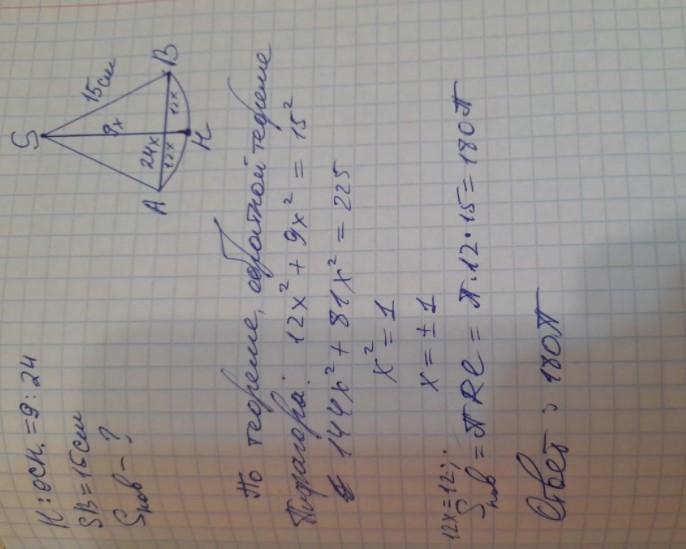 H : осн. = 9 : 24
SB = 15 см
Sпов - ?
S
15 см
9x
24x
12x
12x
A
H
B
По теореме, обратной теореме
Пифагора: 12x² + 9x² = 15²
144x² + 81x² = 225
x² = 1
x = ± 1
12x = 12;
Sпов = πRl = π · 12 · 15 = 180π
Ответ: 180π